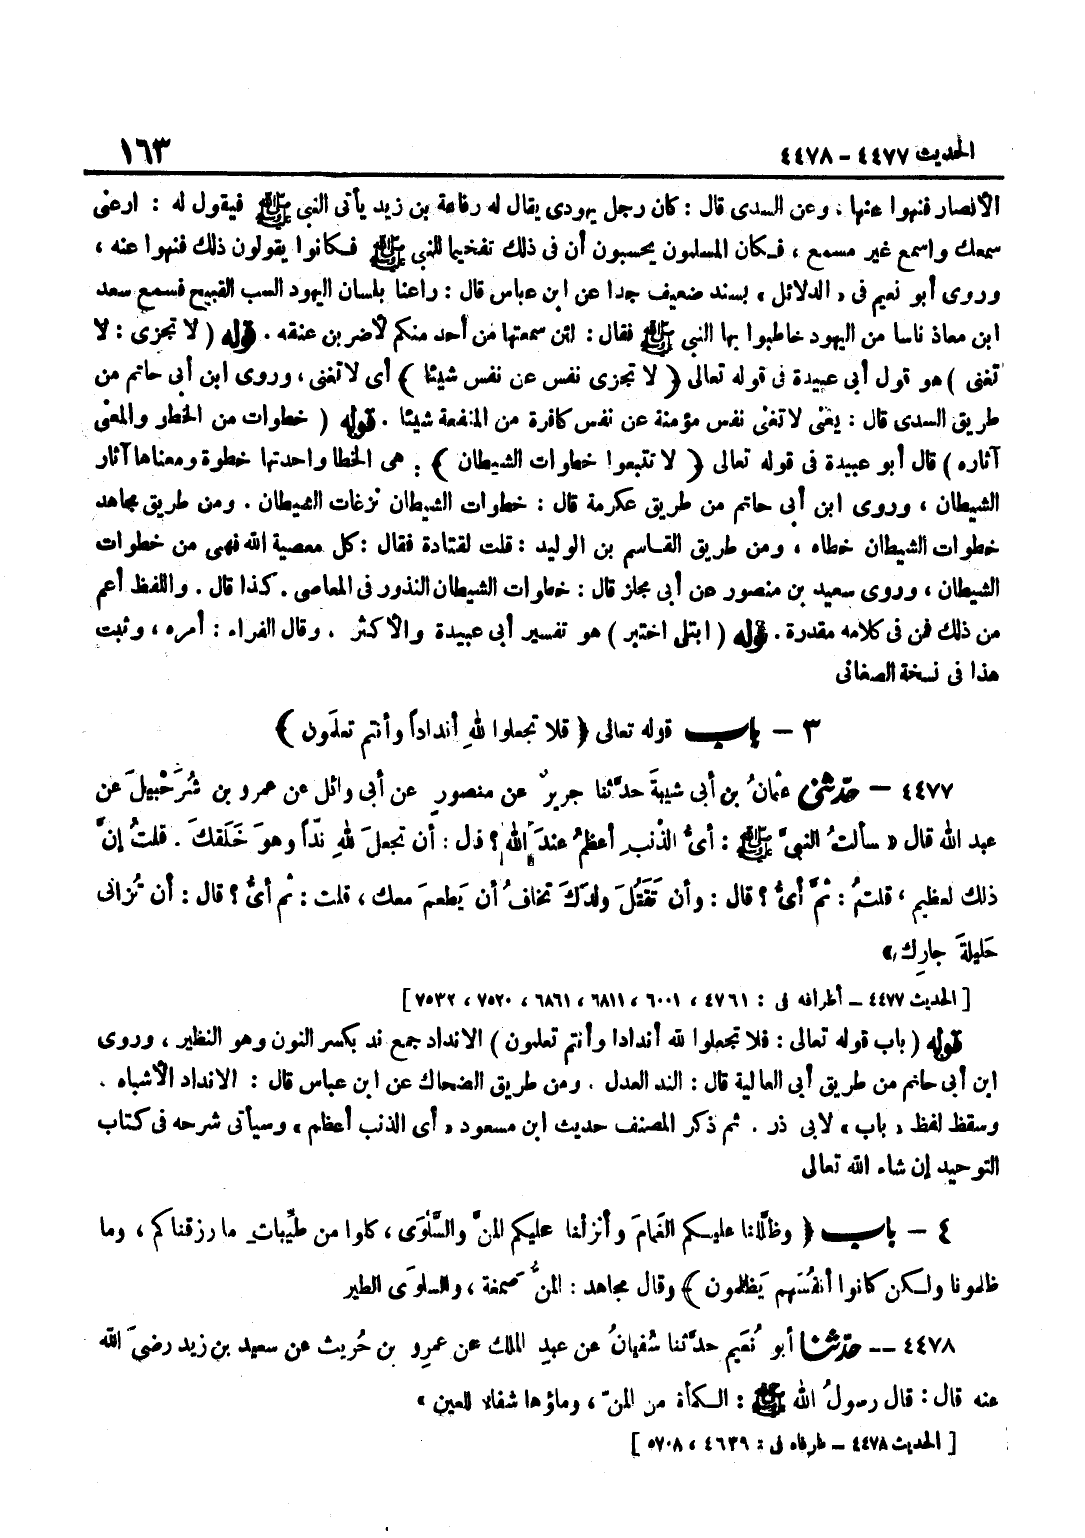 الحديث ٤٤٧٧ – ٤٤٧٨
١٦٣
الأنصار فنهوا عنها ، وعن السدى قال : كان رجل يهودى يقال له رفاعة بن زيد يأتى النبي ﷺ فيقول له : ارعنى
سمعك واسمع غير مسمع ، فكان المسلمون يحسبون أن فى ذلك تفخيما للنبي ﷺ فكانوا يقولون ذلك فنهوا عنه ،
وروى أبو نعيم فى « الدلائل » بسند ضعيف جدا عن ابن عباس قال : راعنا بلسان اليهود السب القبيح فسمع سعد
ابن معاذ ناسا من اليهود خاطبوا بها النبي ﷺ فقال : لئن سمعتها من أحد منكم لأضربن عنقه . قوله ( لا تجزى : لا
تغنى ) هو قول أبى عبيدة فى قوله تعالى ﴿ لا تجزى نفس عن نفس شيئا ﴾ أى لا تغنى ، وروى ابن أبى حاتم من
طريق السدى قال : يعنى لا تغنى نفس مؤمنة عن نفس كافرة من المنفعة شيئا . قوله ( خطوات من الخطو والمعنى
آثاره ) قال أبو عبيدة فى قوله تعالى ﴿ لا تتبعوا خطوات الشيطان ﴾ : هى الخطا واحدتها خطوة ومعناها آثار
الشيطان ، وروى ابن أبى حاتم من طريق عكرمة قال : خطوات الشيطان نزغات الشيطان . ومن طريق مجاهد
خطوات الشيطان خطاه ، ومن طريق القاسم بن الوليد : قلت لقتادة فقال : كل معصية الله فهى من خطوات
الشيطان ، وروى سعيد بن منصور عن أبى مجلز قال : خطوات الشيطان النذور فى المعاصى . كذا قال . واللفظ أعم
من ذلك فمن فى كلامه مقدرة . قوله ( ابتلى اختبر ) هو تفسير أبى عبيدة والأكثر . وقال الفراء : أمره ، وثبت
هذا فى نسخة الصغانى
٣ – باب قوله تعالى ﴿ فلا تجعلوا للهِ أنداداً وأنتم تعلَمون ﴾
٤٤٧٧ – حدّثنى عثمانُ بن أبى شيبةَ حدَّثنا جريرٌ عن منصورٍ عن أبى وائل عن عمرو بن شُرَحْبيلَ عن
عبد الله قال « سألتُ النبيَّ ﷺ : أىُّ الذَّنبِ أعظمُ عندَ الله ؟ قال : أن تجعلَ للهِ نِدّاً وهوَ خَلَقكَ . قلتُ إنَّ
ذلك لعظيم ، قلتُ : ثمَّ أىُّ ؟ قال : وأن تَقتُلَ ولدَكَ تخافُ أن يَطعمَ معك ، قلت : ثم أىُّ ؟ قال : أن تُزانى
حَليلةَ جارِك »
[ الحديث ٤٤٧٧ – أطرافه فى : ٤٧٦١ ، ٦٠٠١ ، ٦٨١١ ، ٦٨٦١ ، ٧٥٢٠ ، ٧٥٣٢ ]
قوله ( باب قوله تعالى : فلا تجعلوا لله أندادا وأنتم تعلمون ) الانداد جمع ند بكسر النون وهو النظير ، وروى
ابن أبى حاتم من طريق أبى العالية قال : الند العدل . ومن طريق الضحاك عن ابن عباس قال : الانداد الأشباه .
وسقط لفظ « باب » لابى ذر . ثم ذكر المصنف حديث ابن مسعود « أى الذنب أعظم » وسيأتى شرحه فى كتاب
التوحيد إن شاء الله تعالى
٤ – باب ﴿ وظلَّلنا عليكم الغمامَ وأنزلنا عليكم المنَّ والسَّلْوَى ، كلوا من طيِّباتِ ما رزقناكم ، وما
ظلمونا ولكن كانوا أنفُسَهم يَظلمون ﴾ وقال مجاهد : المنُّ صَمغة ، والسلوَى الطير
٤٤٧٨ – حدّثنا أبو نُعَيم حدَّثنا سُفيانُ عن عبدِ الملك عن عمرِو بن حُريث عن سعيد بن زيد رضىَ الله
عنه قال : قال رسولُ الله ﷺ : الكمأة من المنّ ، وماؤها شفاء للعين »
[ الحديث ٤٤٧٨ – طرفاه فى : ٤٦٣٩ ، ٥٧٠٨ ]